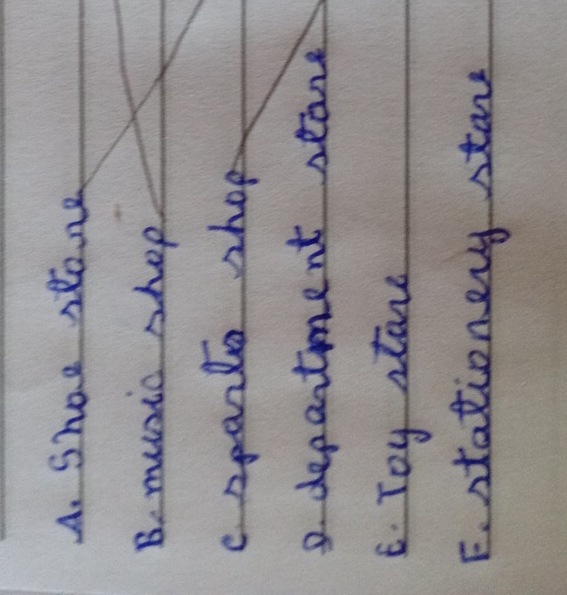 A. Shoe store
B. music shop
C sports shop
D. department store
E. Toy store
F. stationery store